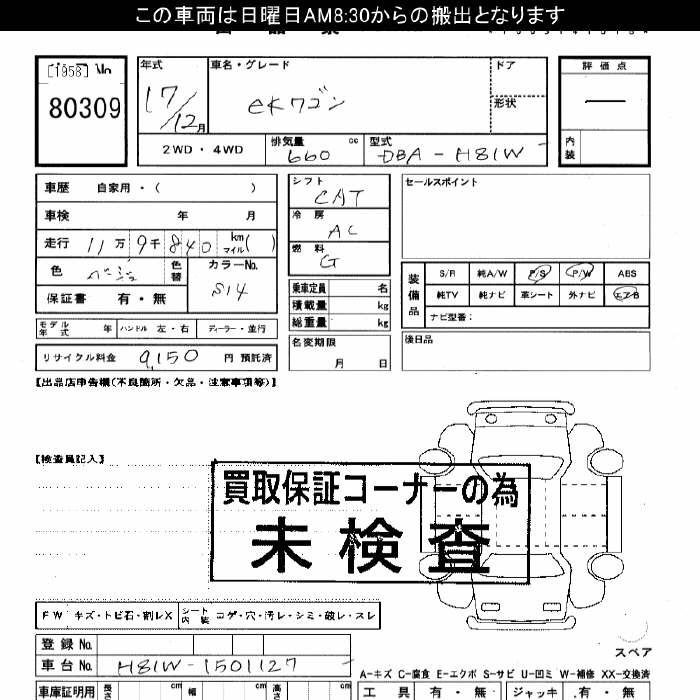 この車両は日曜日AM8:30からの搬出となります
[1958] No
80309
年式
17/12月
車名・グレード
eKワゴン
ドア
形状
評価点
―
内装
2WD・4WD
排気量 cc
660
型式
DBA-H81W
車歴 自家用・( )
車検 年 月
走行 11万9千840 km マイル( )
色 ベージュ 色替
カラーNo.
S14
保証書 有・無
モデル年式 年 ハンドル 左・右 ディーラー・並行
リサイクル料金 9,150 円 預託済
シフト
CAT
冷房
AC
燃料
G
乗車定員 名
積載量 kg
総重量 kg
名変期限
月 日
セールスポイント
装備品
S/R 純A/W P/S P/W ABS
純TV 純ナビ 革シート 外ナビ エアB
ナビ型番:
後日品
【出品店申告欄(不良箇所・欠品・注意事項等)】
【検査員記入】
買取保証コーナーの為
未検査
FW キズ・トビ石・割レX
シート内装 コゲ・穴・汚レ・シミ・破レ・スレ
登録No.
車台No. H81W-1501127
スペア
A-キズ C-腐食 E-エクボ S-サビ U-凹ミ W-補修 XX-交換済
車庫証明用 長さ cm 幅 cm 高さ cm
工具 有・無 ジャッキ 有・無